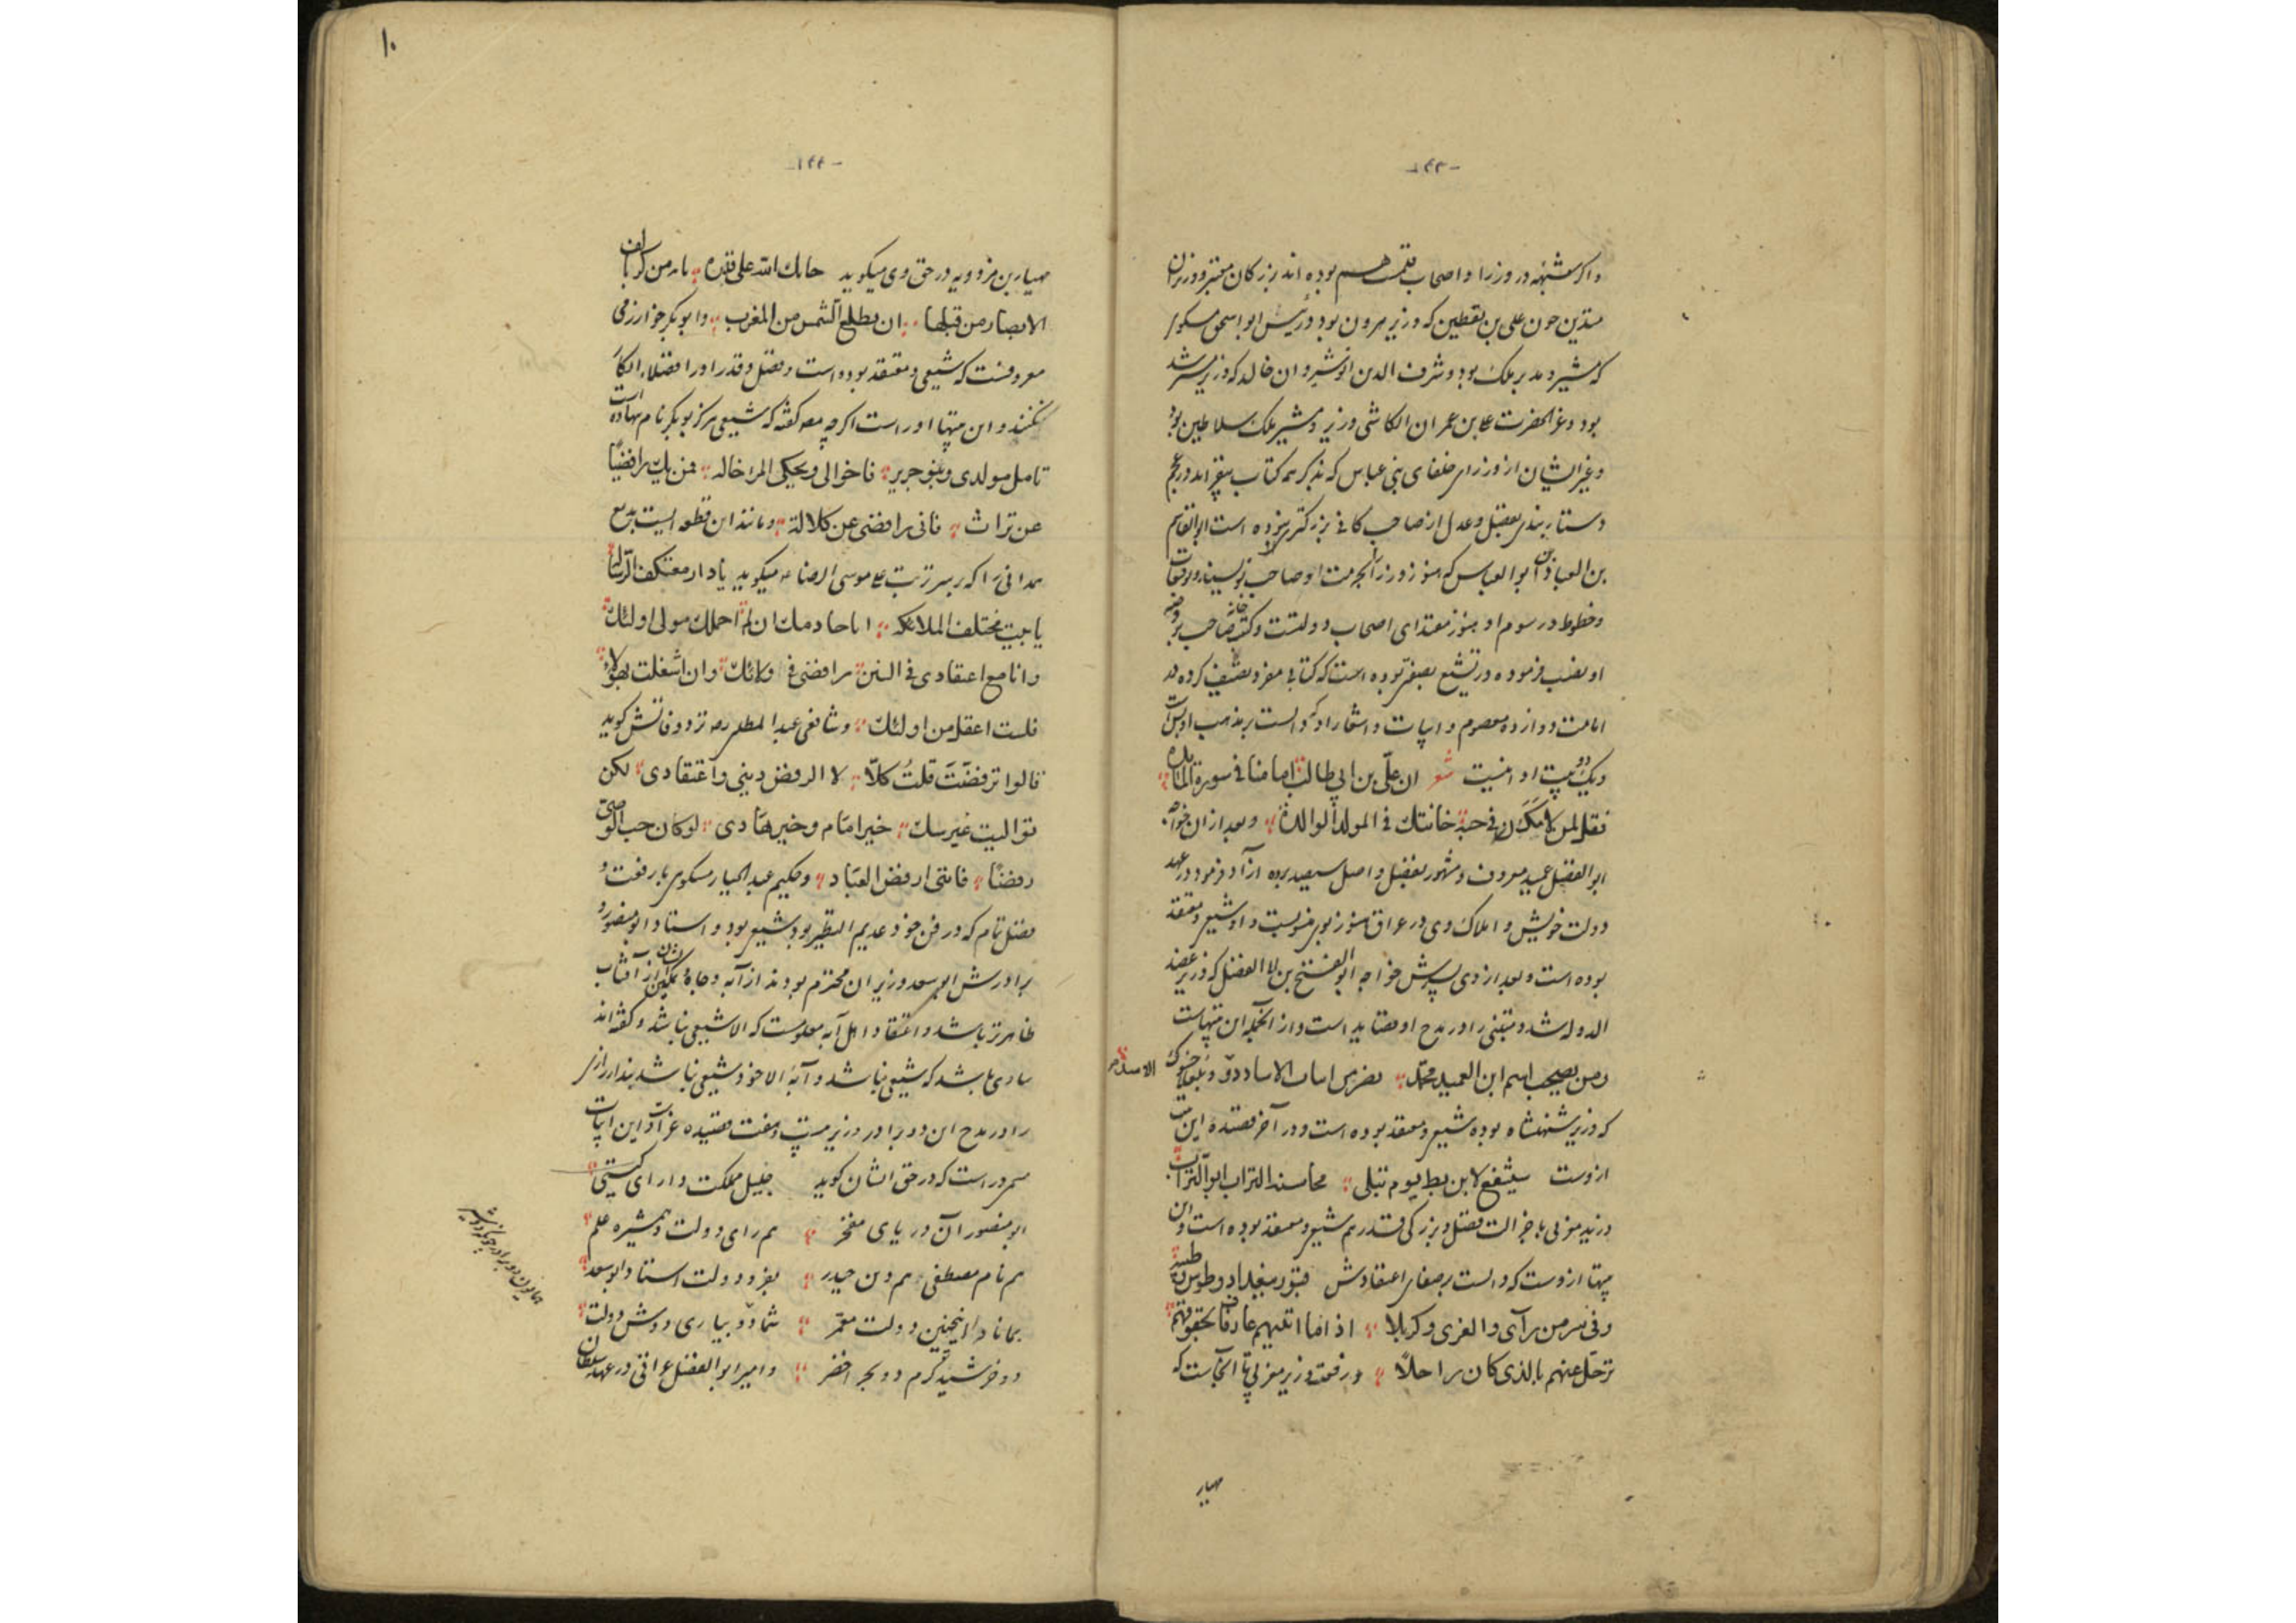 -۱۴۳-
واکر مشبهه در وزرا و اصحاب قلمت هم بوده اند بزرکان معتبر وزیران
متدین چون علی بن یقطین که وزیر هرون بود و رئیس ابو اسحق مسکوی
که مشیر و مدبر ملک بود و شرف الدین انوشیروان خالد که وزیر مسترشد
بود و عز الحضرت علی بن عمران الکاشی وزیر و مشیر ملک سلاطین بود
و غیر ایشان از وزرای خلفای بنی عباس که بذکر همه کتاب بیفزاید و در عجم
دستاربندی بفضل و عدل از صاحب کافی بزرکتر نبوده است ابو القاسم
بن العباد بن ابو العباس که هنوز وزرا بحرمت او صاحب نویسند و توقیعات
و خطوط و رسوم او هنوز مقتدای اصحاب دولتست و کتب خانه صاحب بروضه
او نصب فرموده و در تشیع بصفتی بوده است که کتابی مفرد تصنیف کرده در
امامت دوازده معصوم و ابیات و اشعار او که دالست بر مذهب او بسی است
و یک دو بیت او اینست شعر ان علی بن ابی طالب امامنا فی سورة المائده
فقل لمن لامک فی حبه خانتک فی المولد الوالدة و بعد از ان خواجه
ابو الفضل عمید معروف و مشهور بفضل و اصل سعید برده آزاد فرمود در عهد
دولت خویش و املاک وی در عراق هنوز بوی منسوبست و او شیعی و معتقد
بوده است و بعد از وی پسرش خواجه ابو الفتح بن ابی الفضل که وزیر عضد
الدوله شد و متنبی را در مدح او قصاید است و از انجمله این بیتهاست
ومن یصحب اسم ابن العمید محمد
که وزیر شهنشاه بوده شیعی و معتقد بوده است و در آخر قصیده این بیت
ازوست سیشفع لابن بطه یوم تبلی محاسنه التراب ابو التراب
وزیر مغربی با جزالت فضل و بزرکی قدر هم شیعی و معتقد بوده است و این
بیتها ازوست که دالست بر صفای اعتقادش قبور ببغداد و طوس وطیبة
وفی سر من رآی والغری وکربلا اذا ما اتیتهم عارفا بحقوقهم
ترحل عنهم بالذی کان راحلا و رفعت وزیر مغربی تا آنجاست که
مهیار
۱۰
-۱۴۴-
مهیار بن مرزویه در حق وی میکوید
الابصار من قبلها ان یطلع الشمس من المغرب و ابو بکر خوارزمی
معروفست که شیعی و معتقد بوده است و فضل و قدر او را فضلا انکار
نکنند و این بیتها او راست اکرچه مصر کفته که شیعی هرکز بوبکر نام ننهاده است
بآمل مولدی وبنو جریر فاخوالی ویحکی المرء خاله فمن یک رافضیا
عن تراث فانی رافضی عن کلالة و مانند این قطعه ایست بدیع
همدانی را که بر سر تربت علی موسی الرضا ع میکوید یا دار معتکف الرسالة
یا بیت مختلف الملائکه
وانا مع اعتقادی فی السنن رافضی فی ولائک وان اشغلت بهؤلاء
فلست اغفل من اولئک و شافعی عبد المطلبی نزد وفاتش کوید
قالوا ترفضت قلت کلا لا الرفض دینی و اعتقادی لکن
توالیت غیر شک خیر امام وخیر هادی لو کان حب الوصی
رفضا فاننی ارفض العباد و حکیم عبد الجبار مسکوی با رفعت و
فضل تمام که در فن خود عدیم النظیر بود شیعی بود و استاد ابو منصور و
برادرش ابو سعد وزیران محترم بودند از آبه و جاه و تمکین شان از آفتاب
ظاهرتر باشد و اعتقاد اهل آبه معلومست که الا شیعی نباشد و کفته اند
ساوی باشد که شیعی نباشد و آبهٔ الا خود شیعی نباشد بندار رازی
را در مدح این دو برادر وزیر بیست و هفت قصیده غراست و این ابیات
سرور است که در حق ایشان کوید جلیل مملکت دارای کیتی
ابو منصور آن دریای مفخر هم رای دولت و همشیره علم
هم نام مصطفی هم دین حیدر بفر دولت استاد ابو سعد
بماناد اینچنین دولت معمر شما دو بیاری دو دوش دولت
دو خرشید کرم دو بحر اخضر و امیر ابو الفضل عراقی در عهد سلطان